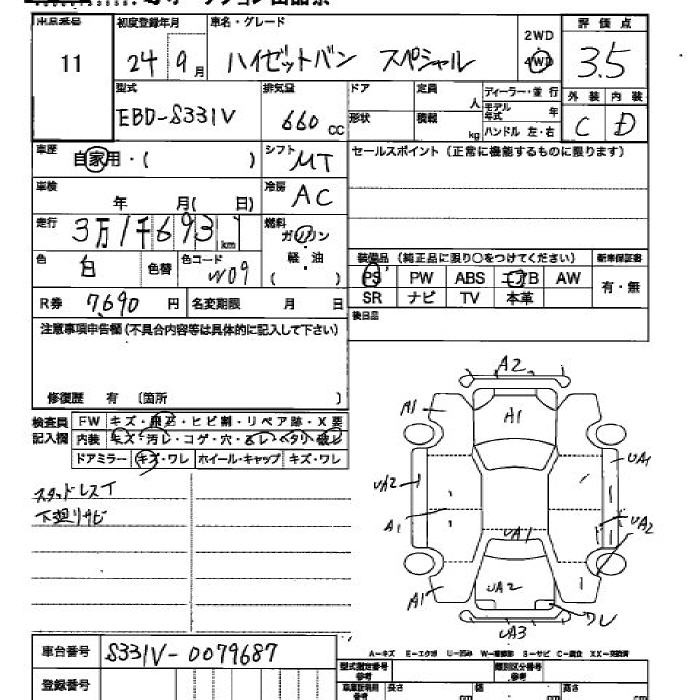 出品番号 初度登録年月 車名・グレード 2WD 4WD 評価点
11 24 9月 ハイゼットバン スペシャル 3.5
型式 排気量 ドア 定員 人 ディーラー・並行 外装 内装
EBD-S331V 660 CC 形状 積載 kg モデル年式 年 ハンドル 左・右 C D
車歴 自家用・( ) シフト MT セールスポイント(正常に機能するものに限ります)
車検 年 月( 日) 冷房 AC
走行 3万1千693 km 燃料 ガソリン 軽・油 ( )
色 白 色替 色コード W09 装備品(純正品に限り○をつけてください) 新車保証書
PS PW ABS エアB AW 有・無
SR ナビ TV 本革
R券 7,690 円 名変期限 月 日 後日品
注意事項申告欄(不具合内容等は具体的に記入して下さい)
修復歴 有 〔箇所 〕
検査員記入欄 FW キズ・飛石・ヒビ割・リペア跡・X要
内装 キズ・汚レ・コゲ・穴・ ヘタリ・破レ
ドアミラー キズ・ワレ ホイール・キャップ キズ・ワレ
スタッドレスT
下廻リサビ
A2
A1 A1
UA2 UA1
A1 UA1 UA2
A1 UA2 ワレ
UA3
車台番号 S331V-0079687
A-キズ E-エクボ U-凹ミ W-補修跡 S-サビ C-腐食 XX-交換済
登録番号 型式指定番号 参考 類別区分番号 参考
車庫証明用 参考 長さ cm 幅 cm 高さ cm